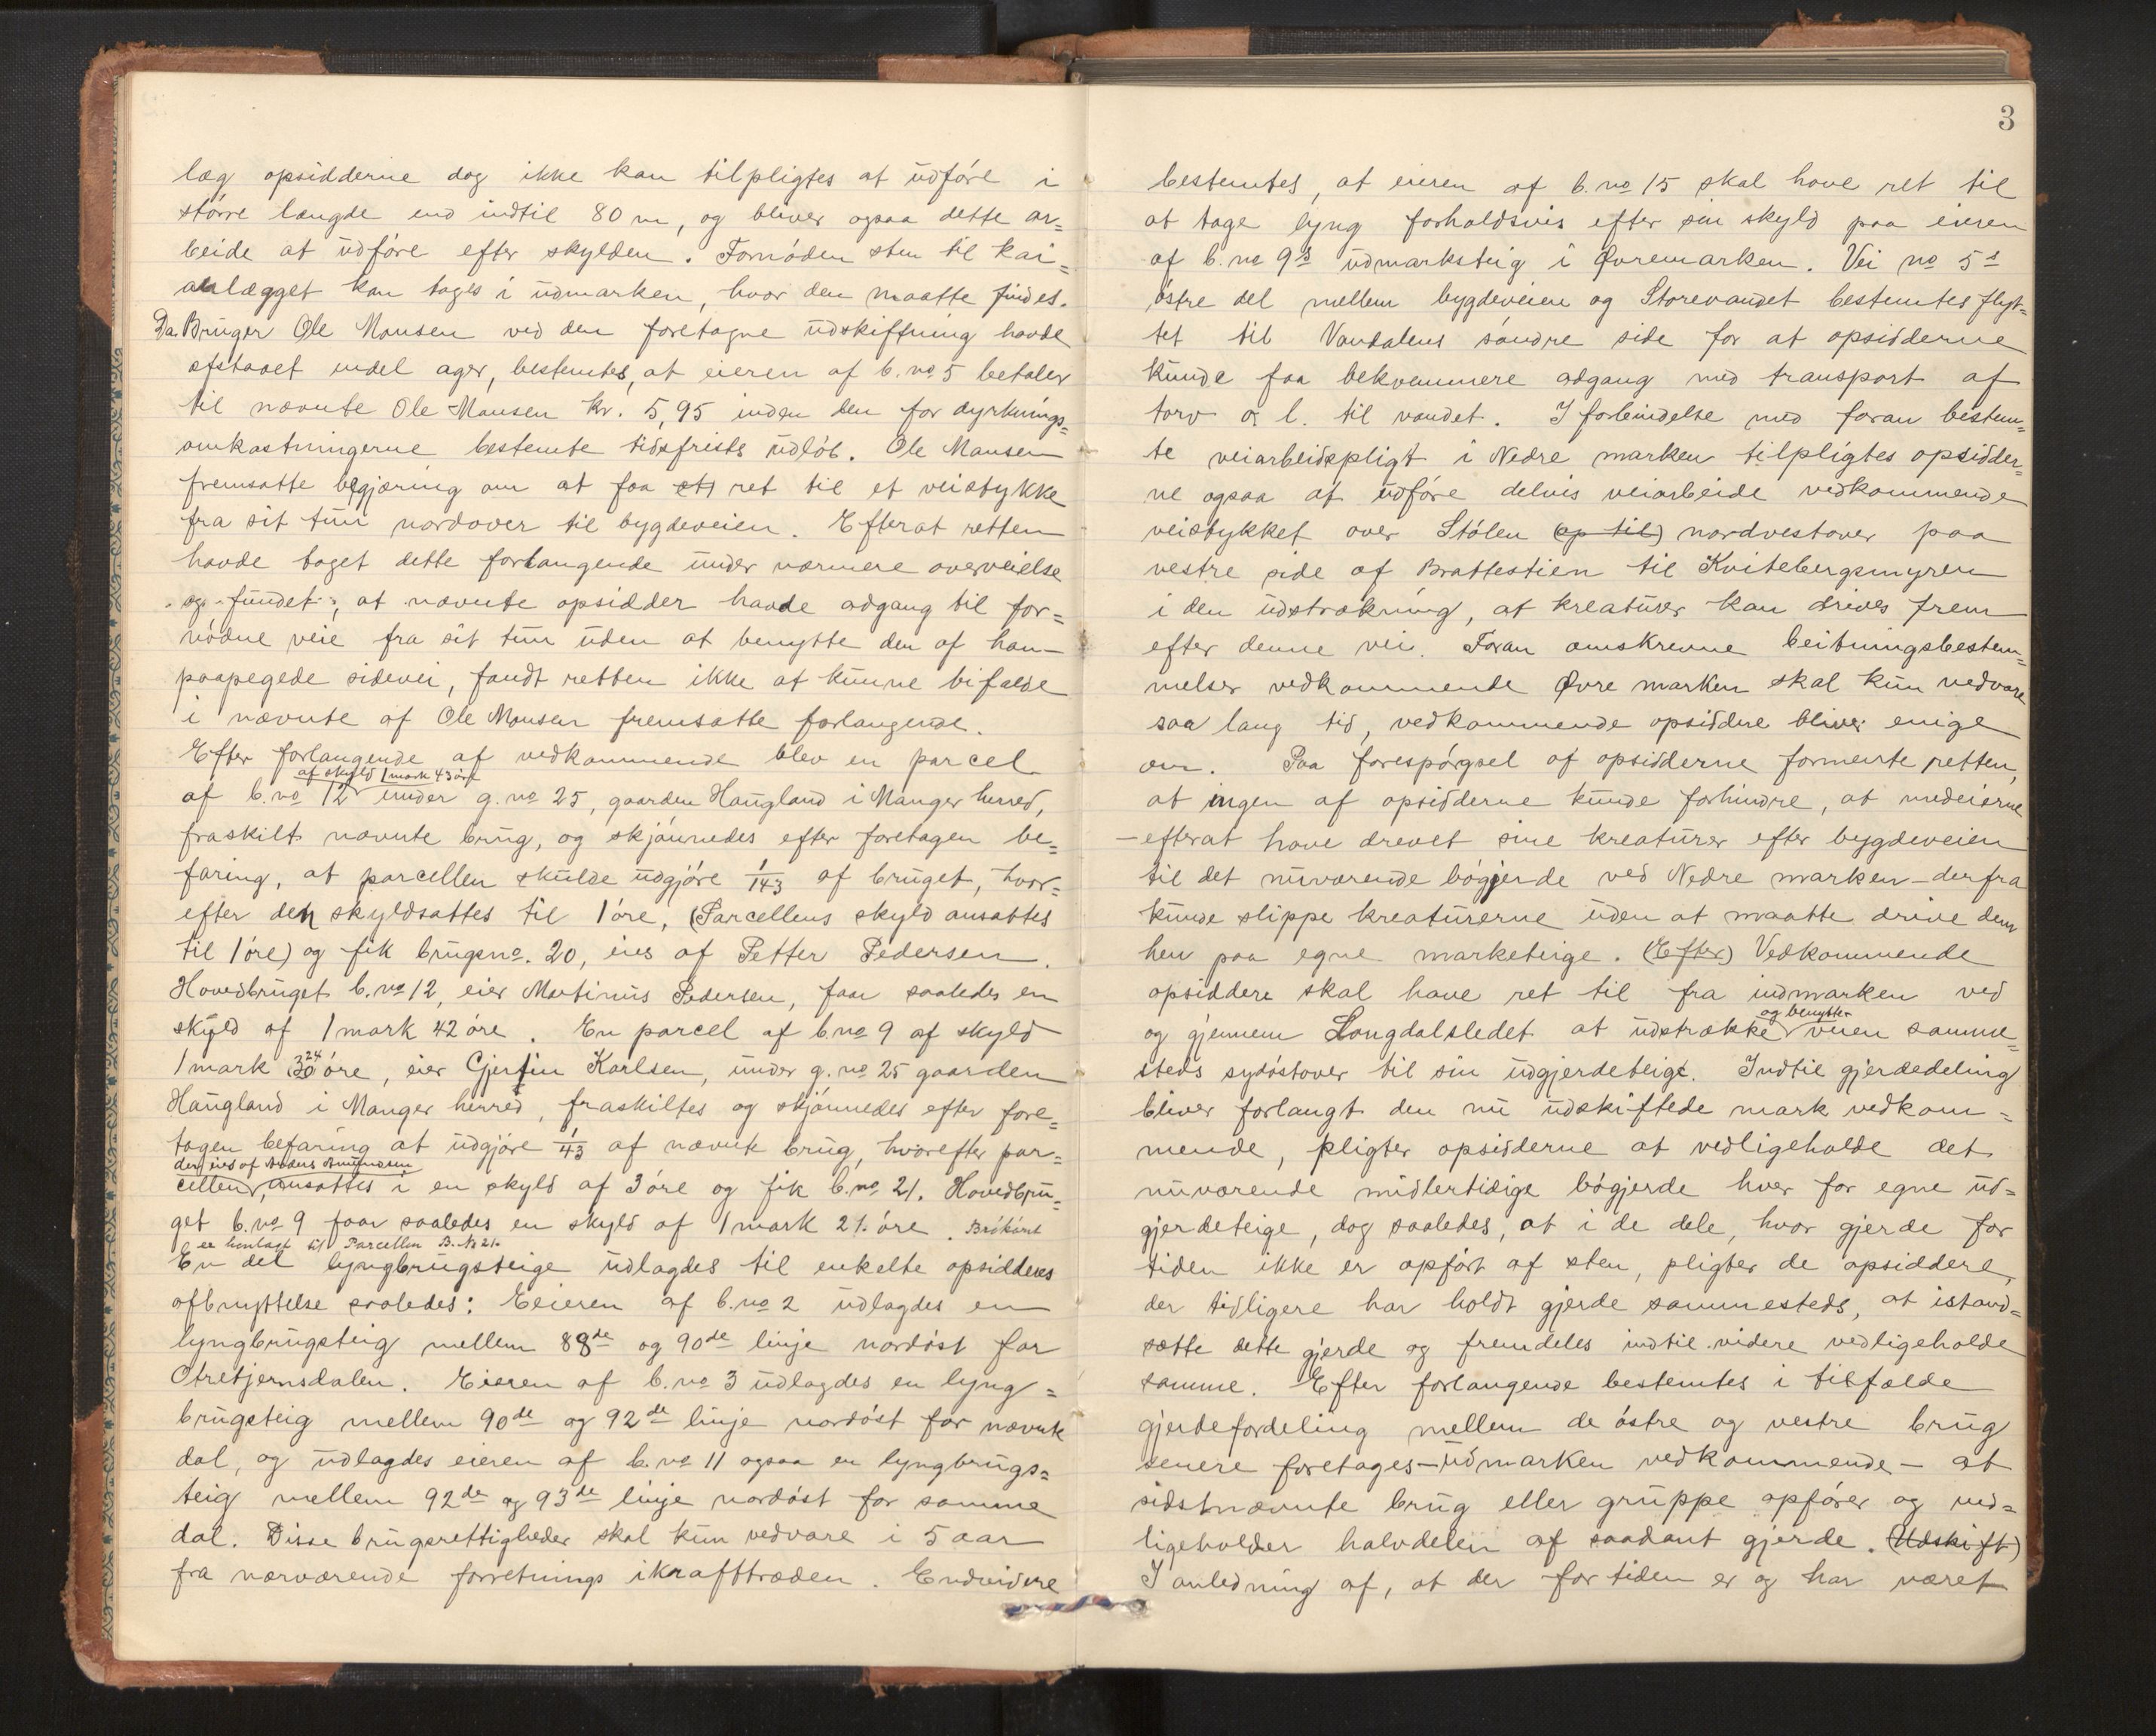 læg opsidderne dog ikke kan tilpligtes at udføre i
større længde end indtil 80 m, og bliver ogsaa dette ar=
beide at udføre efter skylden. Fornøden sten til kai=
anlægget kan tages i udmarken, hvor den maatte findes.
Da Bruger Ole Monsen ved den foretagne udskiftning havde
afstaaet endel ager, bestemtes, at eieren af b. no 5 betaler
til nævnte Ole Monsen kr. 5,95 inden den for dyrknings=
omkastningerne bestemte tidsfrists udløb. Ole Monsen
fremsatte begjæring om at faa et) ret til et veistykke
fra sit tun nordover til bygdeveien. Efterat retten
havde taget dette forlangende under nærmere overveielse
og fundet, at nævnte opsidder havde adgang til for=
nødne veie fra sit tun uden at benytte den af ham
paapegede sidevei, fandt retten ikke at kunne bifalde
i nævnte af Ole Monsen fremsatte forlangende.
Efter forlangende af vedkommende blev en parcel
af skyld 1 mark 43 øre
af b. no 12 under g. no 25, gaarden Haugland i Manger herred,
fraskilt nævnte brug, og skjønnedes efter foretagen be=
faring, at parcellen skulde udgjøre 1/143 af bruget, hvor=
efter den skyldsattes til 1 øre, (Parcellens skyld ansattes
til 1 øre) og fik brugsno. 20, eies af Petter Pedersen.
Hovedbruget b. no 12, eier Martinus Pedersen, faar saaledes en
skyld af 1 mark 42 øre. En parcel af b. no 9 af skyld
24
1 mark 30 øre, eier Gjertin Karlsen, under g. no 25 gaarden
Haugland i Manger herred, fraskiltes og skjønnedes efter fore=
tagen befaring at udgjøre 1/43 af nævnte brug, hvorefter par=
der eies af Anders Amundsen
cellen, ansattes i en skyld af 3 øre og fik b. no 21. Hovedbru=
get b. no 9 faar saaledes en skyld af 1 mark 21 øre.
er henlagt til Parcellen B. No 21.
En del lyngbrugsteige udlagdes til enkelte opsidderes
afbenyttelse saaledes: Eieren af b. no 2 udlagdes en
lyngbrugsteig mellem 88de og 90de linje nordøst for
Otretjernsdalen. Eieren af b. no 3 udlagdes en lyng=
brugsteig mellem 90de og 92de linje nordøst for nævnte
dal, og udlagdes eieren af b. no 11 ogsaa en lyngbrugs=
teig mellem 92de og 93de linje nordøst for samme
dal. Disse brugsrettigheder skal kun vedvare i 5 aar
fra nærværende forretnings ikrafttræden. Endvidere
3
bestemtes, at eieren af b. no 15 skal have ret til
at tage lyng forholdsvis efter sin skyld paa eieren
af b. no 9s udmarksteig i Øvremarken. Vei no 5s
østre del mellem bygdeveien og Storevandet bestemtes flyt=
tet til Vandalens søndre side for at opsidderne
kunde faa bekvemmere adgang med transport af
torv o. l. til vandet. I forbindelse med foran bestem=
te veiarbeidspligt i Nedre marken tilpligtes opsidder=
ne ogsaa at udføre delvis veiarbeide vedkommende
veistykket over Stølen (op til) nordvestover paa
vestre side af Brattestien til Kvitebergsmyren
i den udstrækning, at kreaturer kan drives frem
efter denne vei. Foran omskrevne beitningsbestem=
melser vedkommende Øvre marken skal kun vedvare
saa lang tid, vedkommende opsiddere bliver enige
om. Paa forespørgsel af opsidderne formente retten,
at ingen af opsidderne kunde forhindre, at medeierne
– efterat have drevet sine kreaturer efter bygdeveien
til det nuværende bøgjerde ved Nedre marken – derfra
kunde slippe kreaturerne uden at maatte drive dem
hen paa egne marketeige. (Efter) Vedkommende
opsiddere skal have ret til fra indmarken ved
og benytte
og gjennem Langdalsledet at udstrække veien samme=
steds sydøstover til sin udgjerdeteige. Indtil gjerdedeling
bliver forlangt den nu udskiftede mark vedkom=
mende, pligter opsidderne at vedligeholde det
nuværende midlertidige bøgjerde hver for egne ud=
gjerdeteige, dog saaledes, at i de dele, hvor gjerde for
tiden ikke er opført af sten, pligter de opsiddere,
der tidligere har holdt gjerde sammesteds, at istand=
sætte dette gjerde og fremdeles indtil videre vedligeholde
samme. Efter forlangende bestemtes i tilfælde
gjerdefordeling mellem de østre og vestre brug
senere foretages – udmarken vedkommende – at
sidstnævnte brug eller gruppe opfører og ved=
ligeholder halvdelen af saadant gjerde. (Udskift)
I anledning af, at der for tiden er og har været